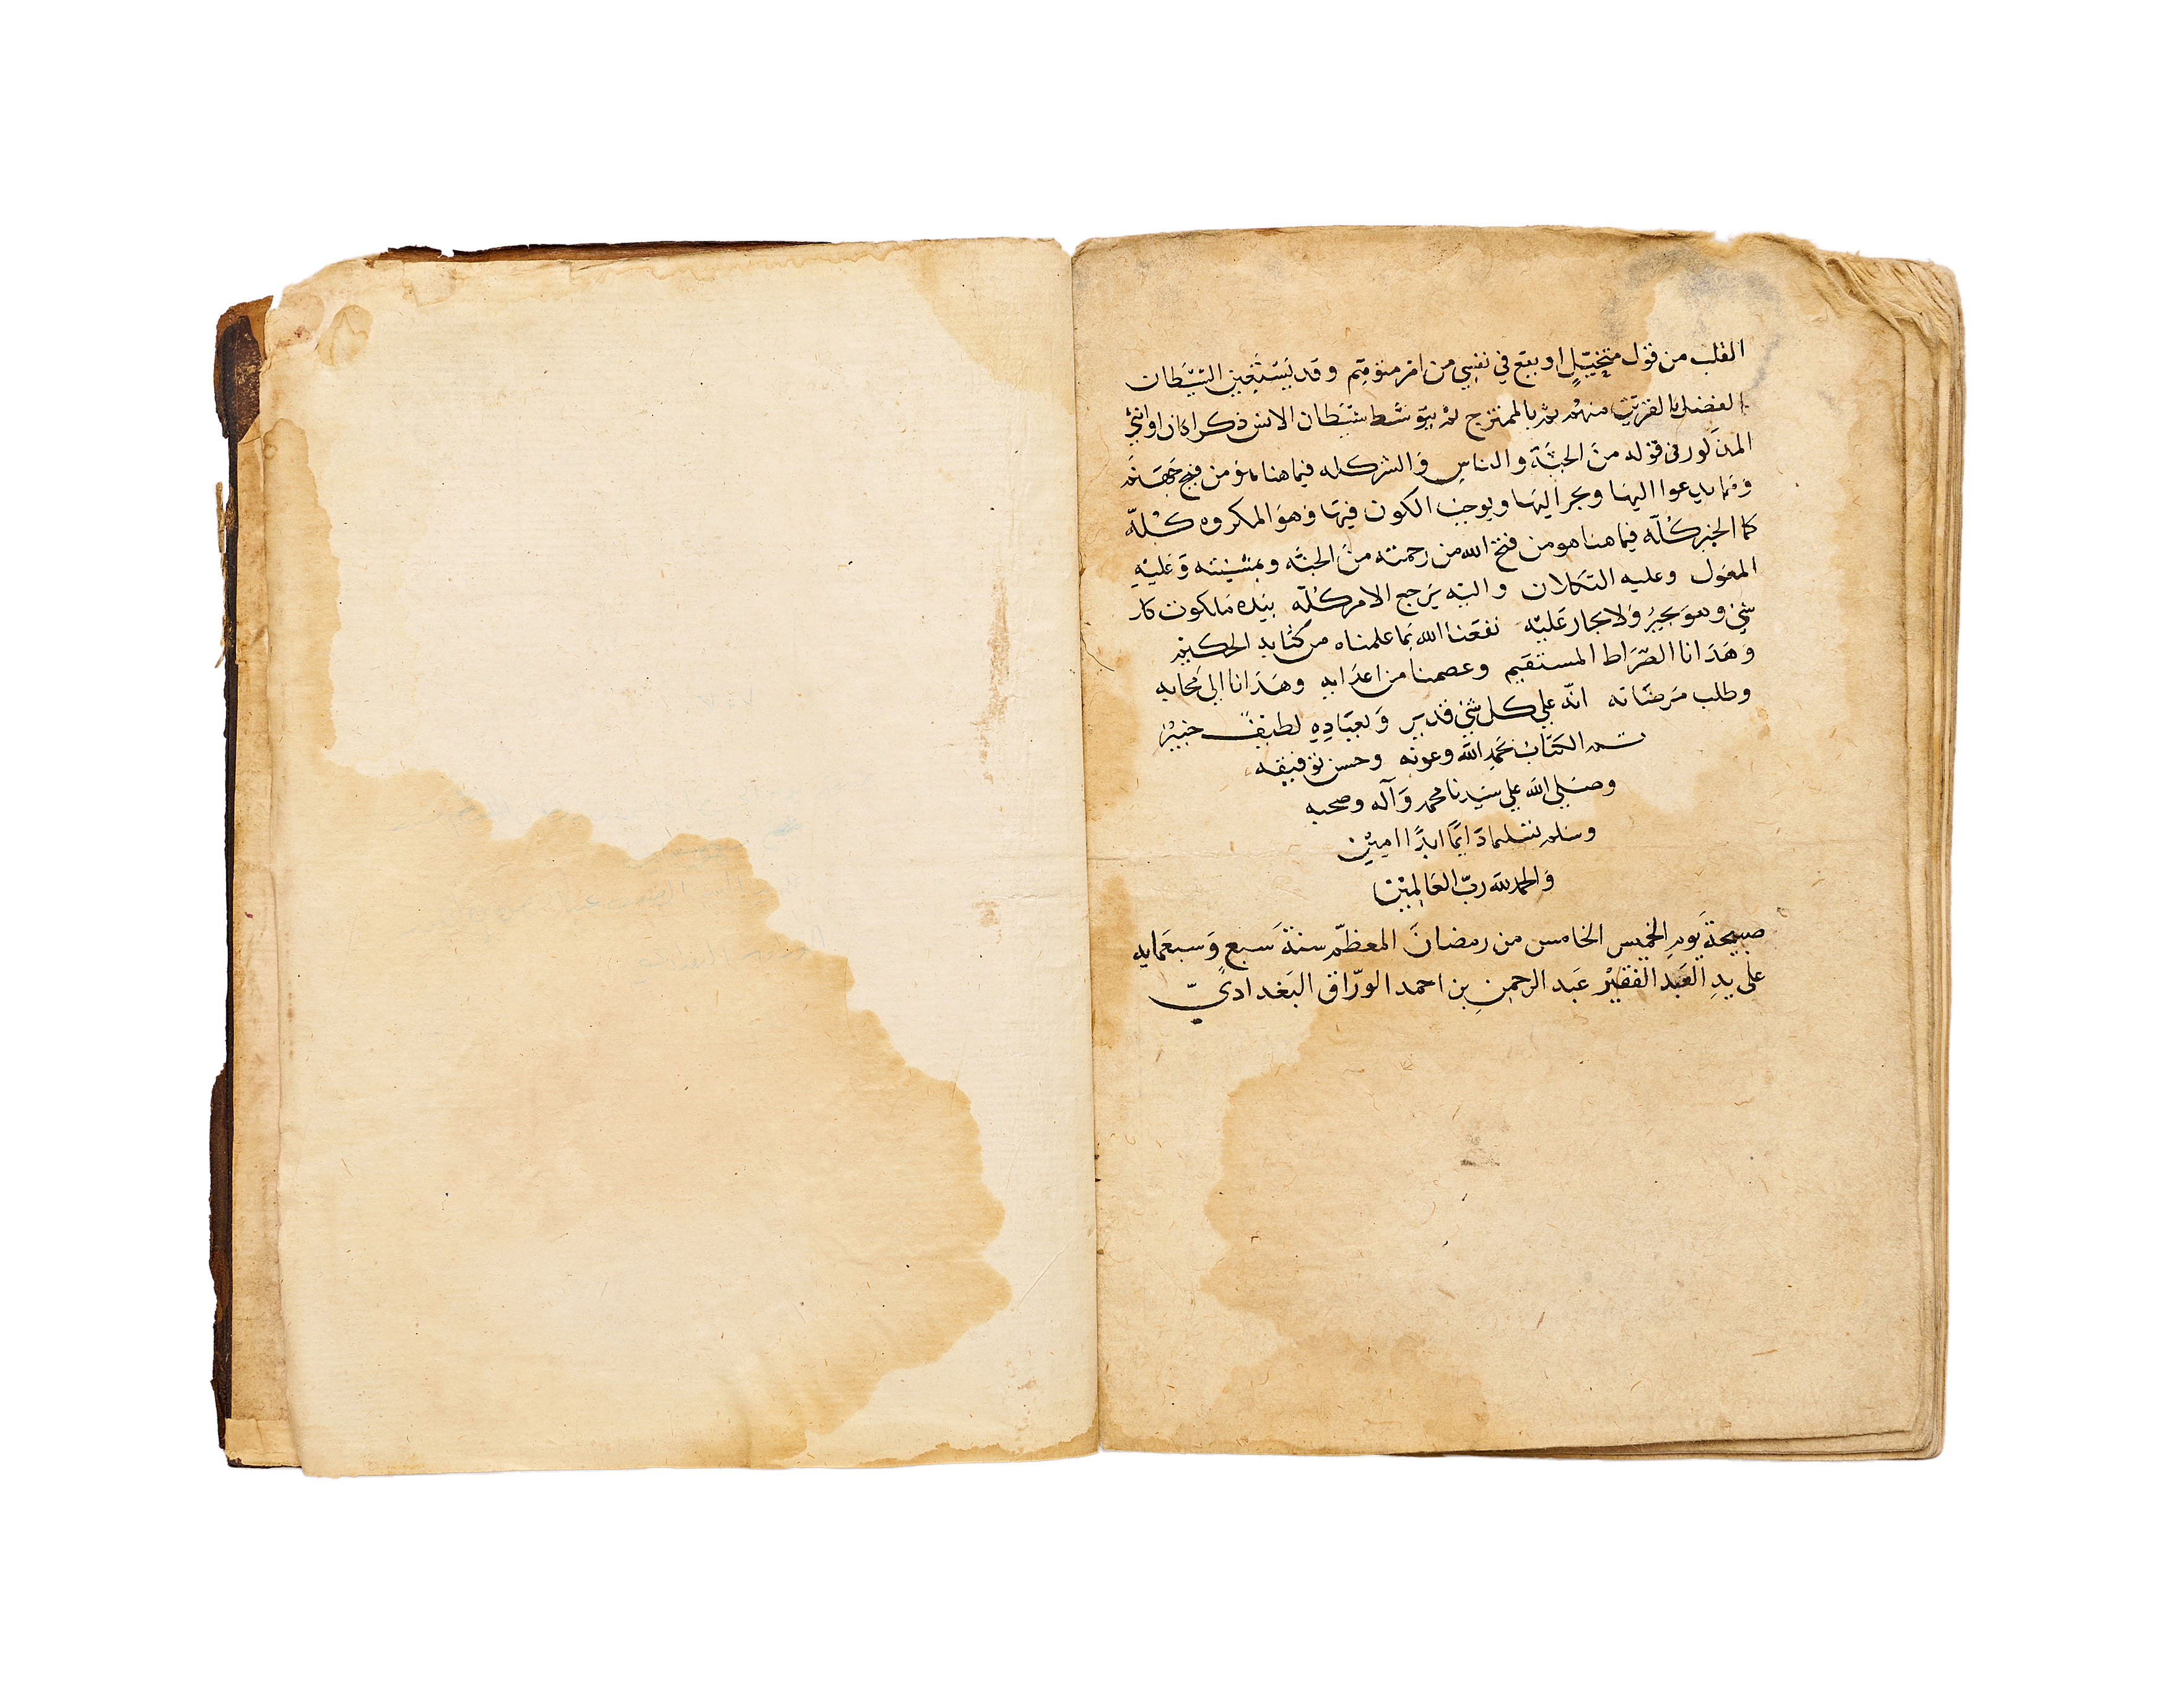 القلب من قول متخيّلٍ او يقع في نفسي من امر متوقّم وقد يَسْتَعِين الشيَطان
الفضل بالقريب منهم ثم بالممتزج ثم بتوسّط شيَطان الانس ذكرا كان او انثي
المذكور في قوله من الجنّة والناس والشر كله فيما هنا هو من فيح جَهَنَّم
ومما يدعوا اليها ويجر اليها ويوجب الكون فيها وهو المكروه كُلّه
كما الخير كُلّه فيما هنا هو من فتح الله من رحمته من الجنّه وبمشيئته وَعليْهِ
المعَول وعليه التكلان واليَه يَرجع الامر كُلّه بيَده مَلكوت كل
شيٍ وهوَ يجيرُ وَلا يجار عَليْه نفعَنا الله بمَا علمناه من كتابه الحكيم
وهَدَانا الصّرَاط المستقيم وعصمنا من اعدَايه وهَدَانا الي محابه
وطلب مَرضَاته انّه علي كل شيٍ قدير وَبعبَادِهِ لطيْفٌ خبيْرٌ
تم الكتَاب بحمدِ الله وعونه وحسن توفيقه
وصَلي الله علي سيَدنا محمد وَآله وصحبه
وسلم تسليما دَايمًا ابدًا امِيْن
وَالحمد لله ربّ العَالمِيْن
صبيحةَ يَومِ الخميس الخامس من رمضانَ المعظّم سنةَ سَبع وَسبعمايه
على يدِ العَبد الفقيْر عَبد الرحمنِ بن احمد الورّاق البَغداديّ